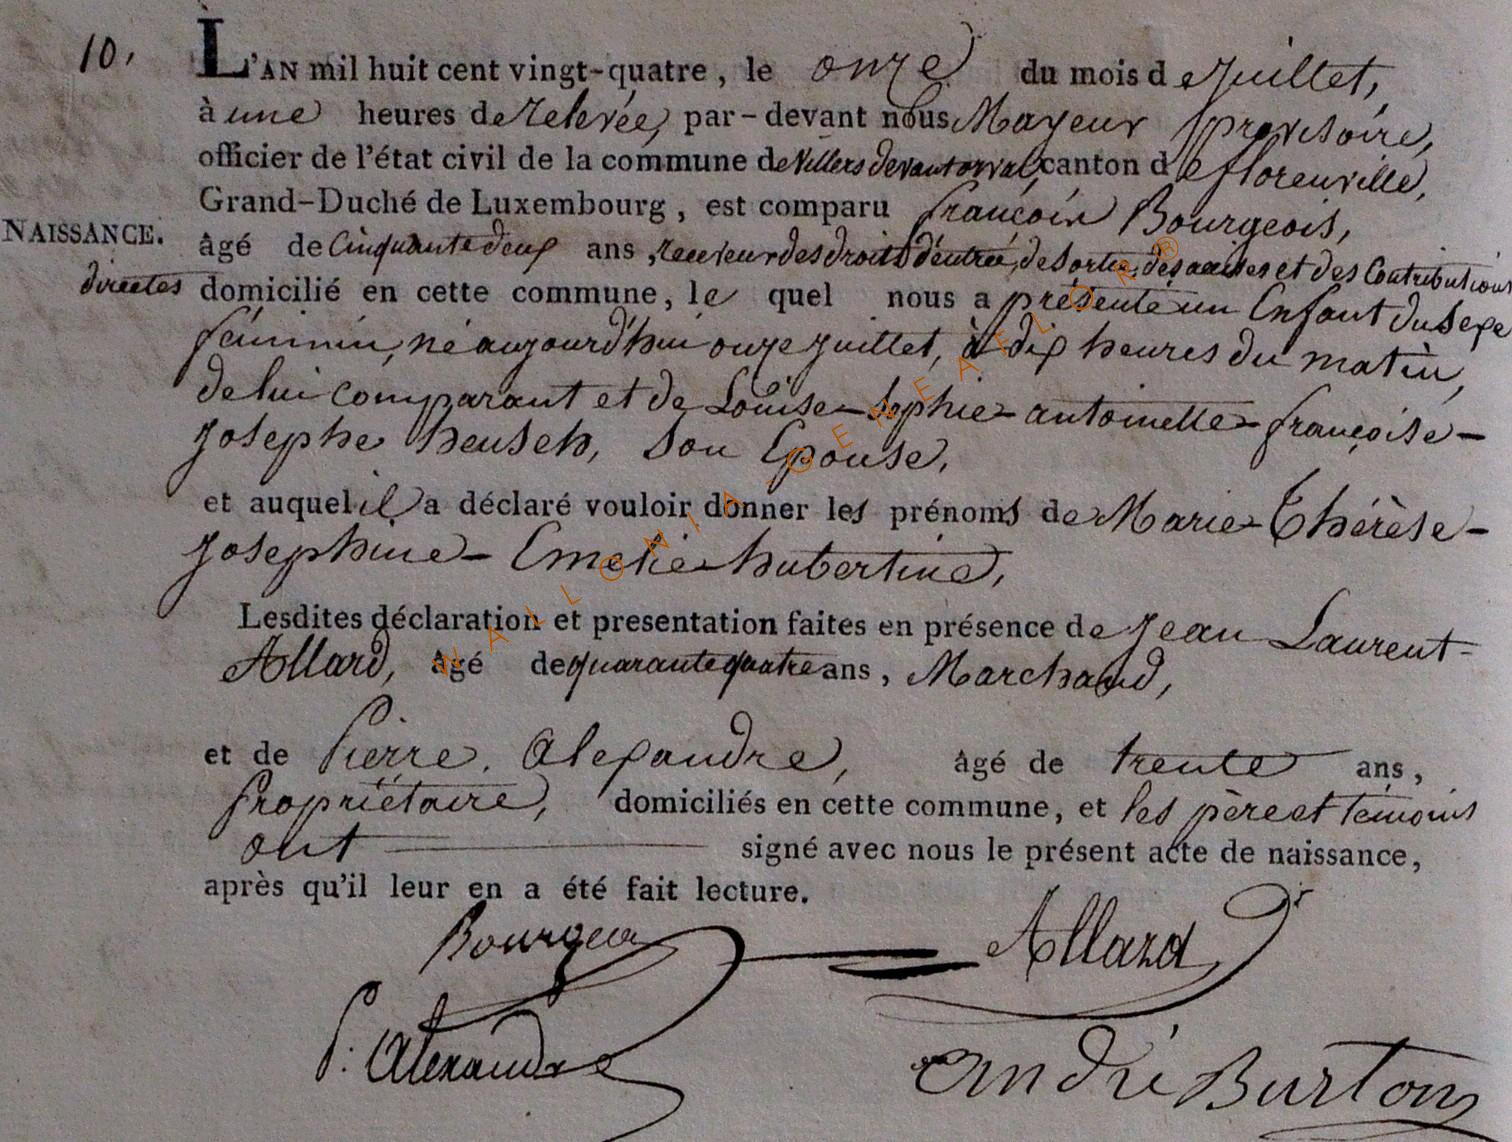 10,
L'AN mil huit cent vingt-quatre, le onze du mois de Juillet,
à une heures de relevée, par-devant nous Mayeur provisoire,
officier de l'état civil de la commune de Villers devant orval, canton de florenville,
Grand-Duché de Luxembourg, est comparu françois Bourgeois,
NAISSANCE.
âgé de Cinquante deux ans, receveur des droits d'entrée, de sortie, des accises et des Contributions
directes domicilié en cette commune, le quel nous a présenté un Enfant du Sexe
féminin, né aujourd'hui onze juillet, à dix heures du matin,
de lui comparant et de Louise-Sophie-antoinette-françoise-
Josephe heusch, son Epouse,
et auquel il a déclaré vouloir donner les prénoms de Marie-Thérèse-
Josephine-Emelie-hubertine,
Lesdites déclaration et presentation faites en présence de Jean Laurent-
Allard, âgé de quarante quatre ans, Marchand,
et de Pierre Alexandre, âgé de trente ans,
propriétaire, domiciliés en cette commune, et les père et témoins
ont signé avec nous le présent acte de naissance,
après qu'il leur en a été fait lecture.
Bourgeois Allard
P. Alexandre
André Burton
WALLONIA-GENEALOR®